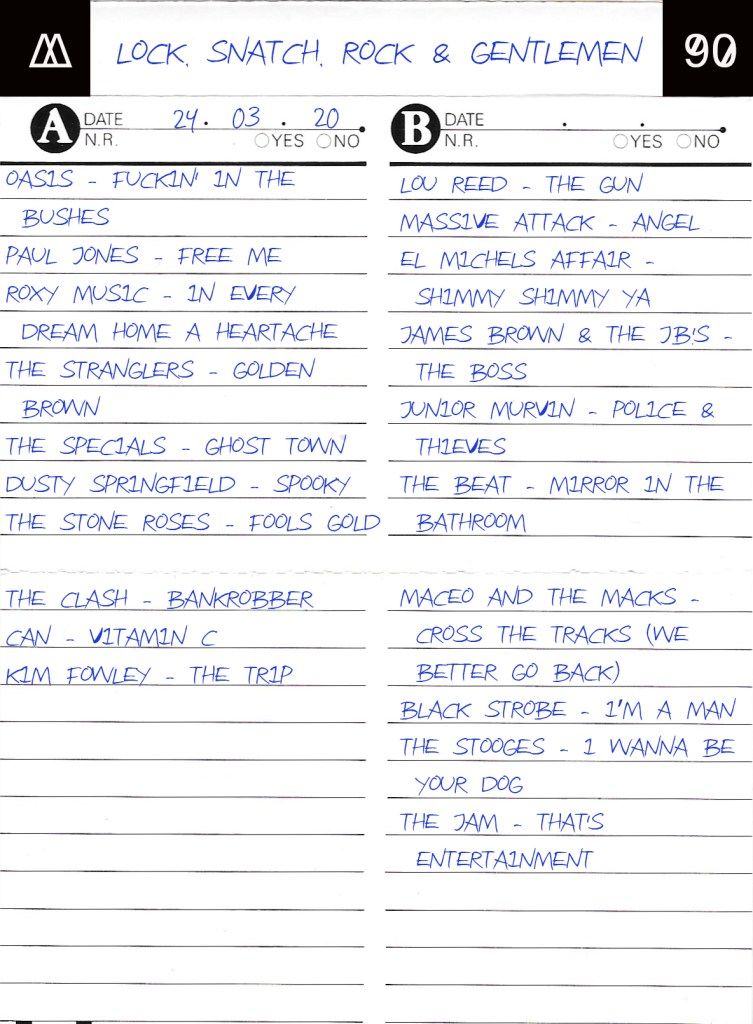 LOCK, SNATCH, ROCK & GENTLEMEN
90
A DATE 24. 03. 20
N.R. YES NO
OASIS - FUCKIN' IN THE
BUSHES
PAUL JONES - FREE ME
ROXY MUSIC - IN EVERY
DREAM HOME A HEARTACHE
THE STRANGLERS - GOLDEN
BROWN
THE SPECIALS - GHOST TOWN
DUSTY SPRINGFIELD - SPOOKY
THE STONE ROSES - FOOLS GOLD
THE CLASH - BANKROBBER
CAN - VITAMIN C
KIM FOWLEY - THE TRIP
B DATE . .
N.R. YES NO
LOU REED - THE GUN
MASSIVE ATTACK - ANGEL
EL MICHELS AFFAIR -
SHIMMY SHIMMY YA
JAMES BROWN & THE JB'S -
THE BOSS
JUNIOR MURVIN - POLICE &
THIEVES
THE BEAT - MIRROR IN THE
BATHROOM
MACEO AND THE MACKS -
CROSS THE TRACKS (WE
BETTER GO BACK)
BLACK STROBE - I'M A MAN
THE STOOGES - I WANNA BE
YOUR DOG
THE JAM - THAT'S
ENTERTAINMENT